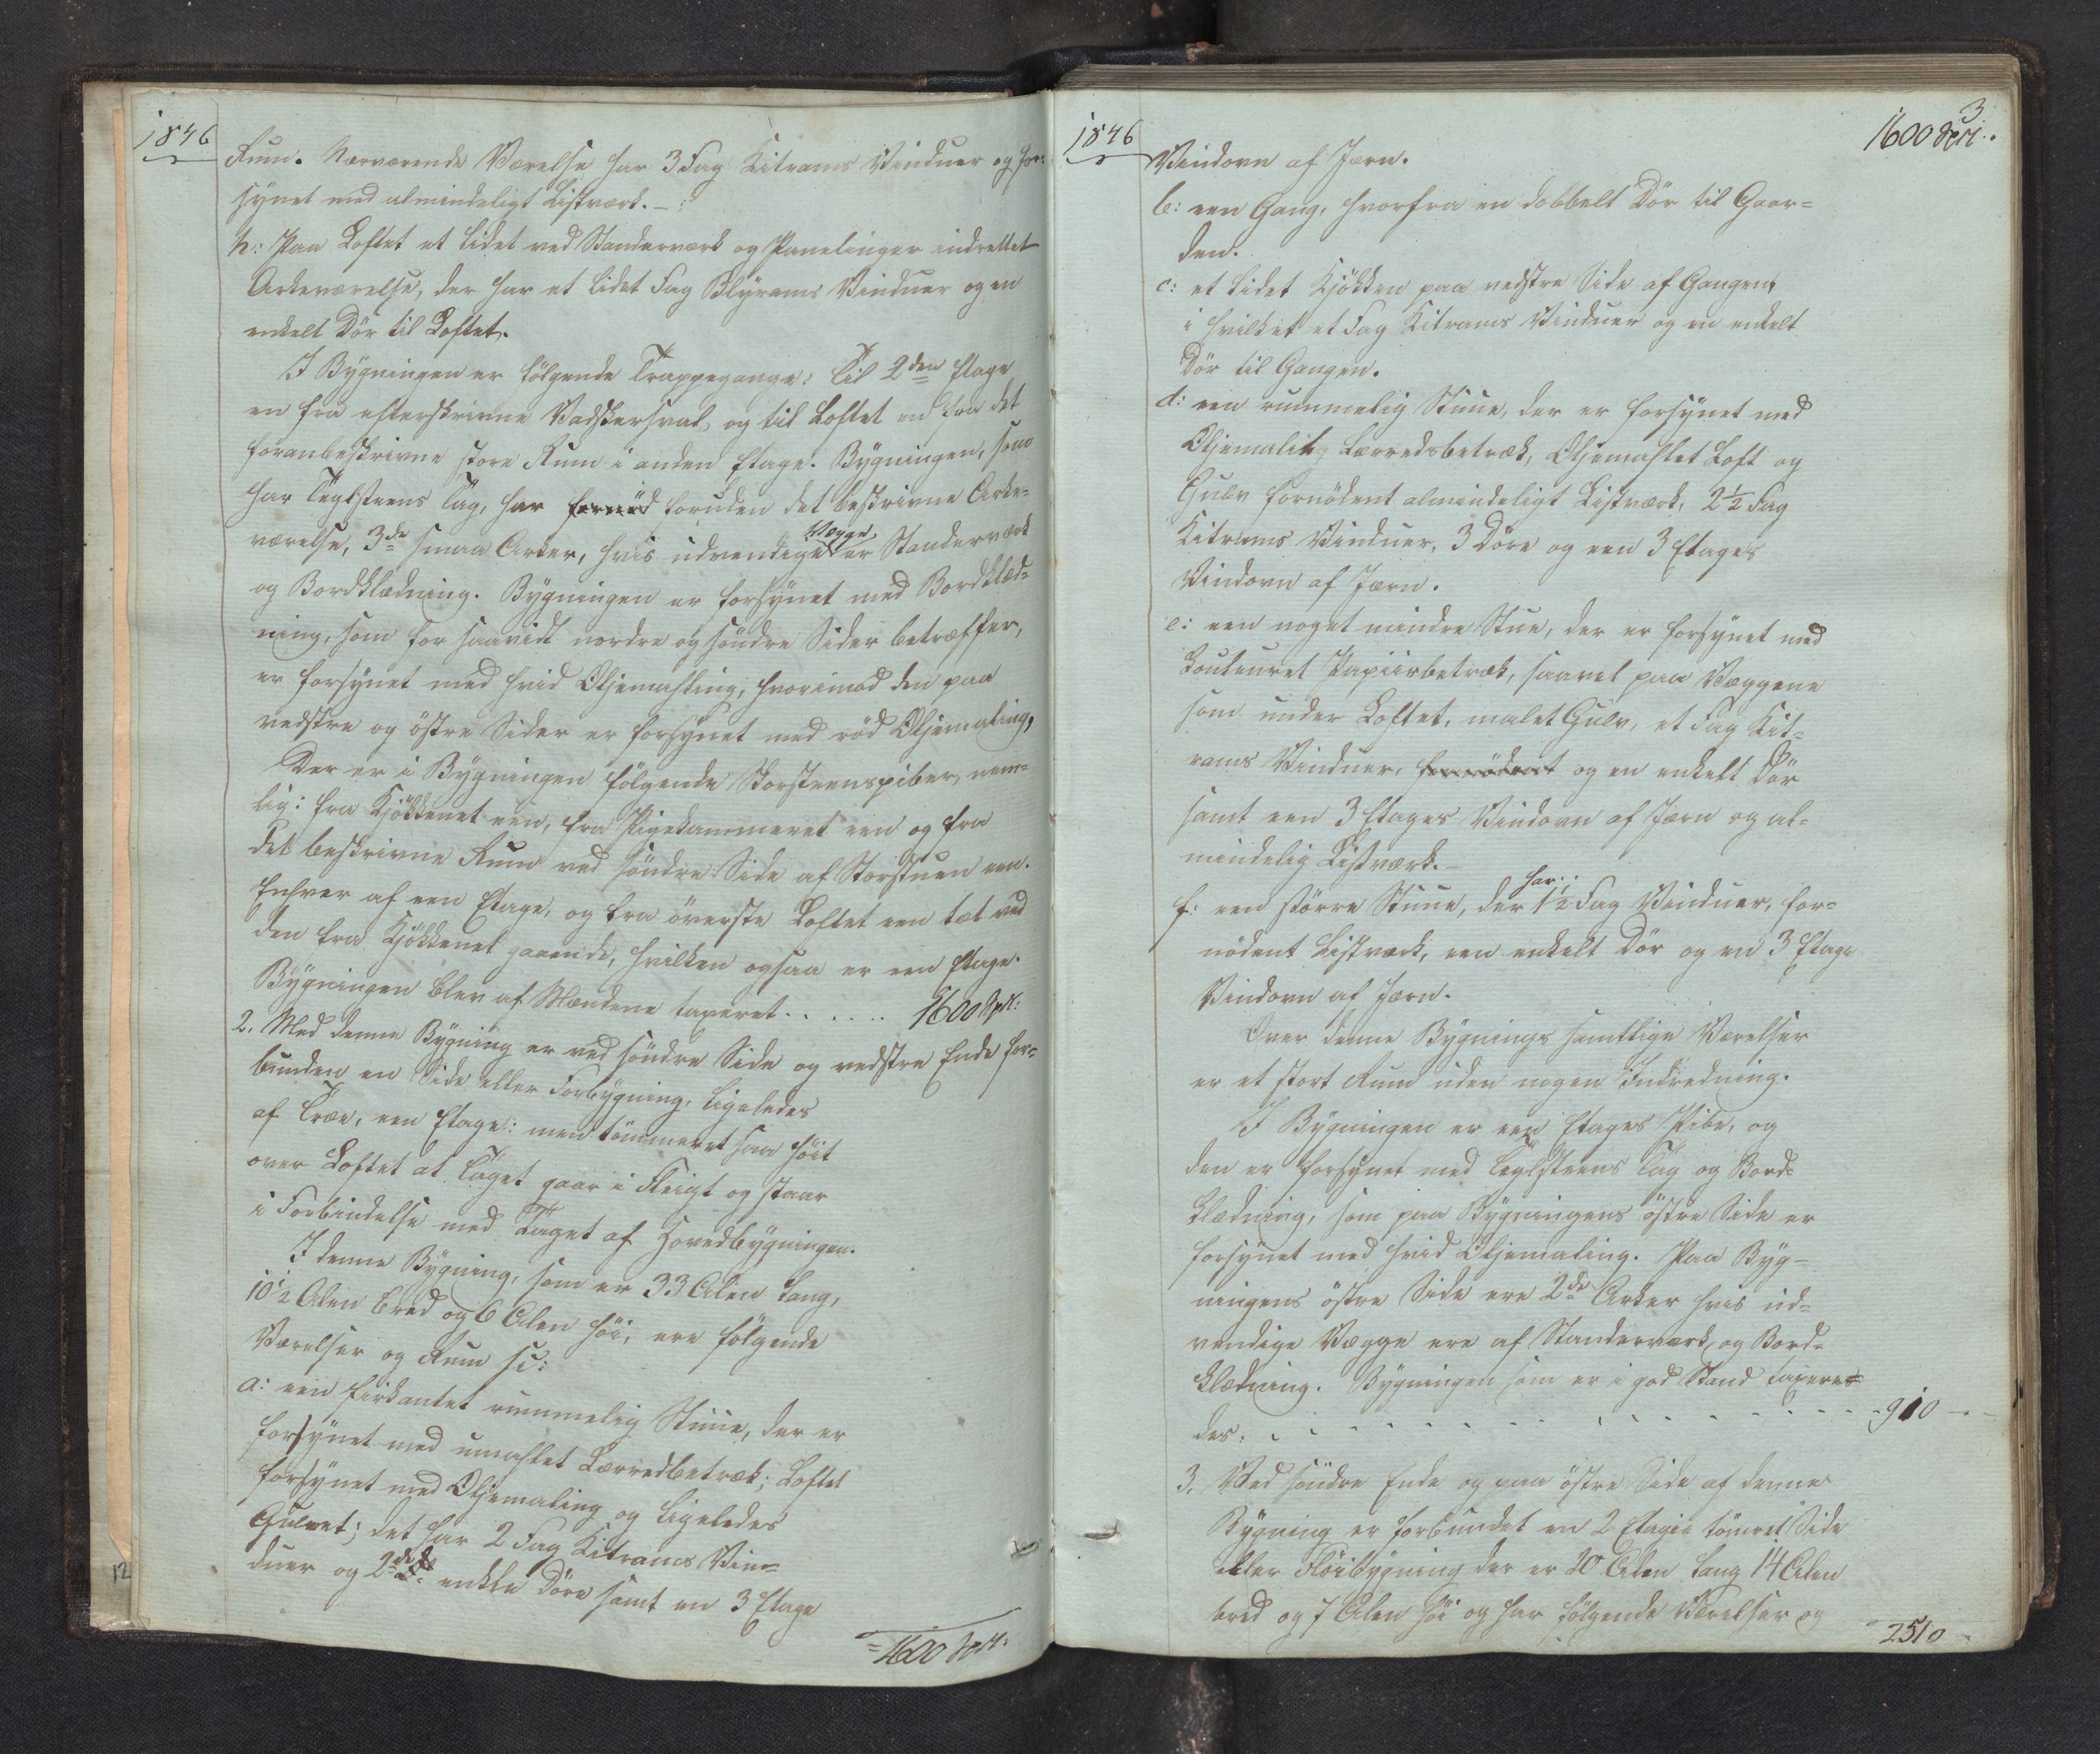 1846
Rum. Nærværende Værelse har 3 Fag Kitrams Vinduer og for-
synet med almindeligt Listværk. –
h: Paa Loftet et lidet ved Standerværk og Panelinger indrettet
Arkeværelse, der har et lidet Fag Blyrams Vinduer og en
enkelt Dör til Loftet.
I Bygningen er fölgende Trappegange: til 2den Etage
en fra efterskrivne Vadskersval, og til Loftet en fra det
foranbeskrivne store Rum i anden Etage. Bygningen, som
har Teglsteens Tag, har foruden det beskrivne Arke-
værelse, 3de smaa Arker, hvis udvendige Vægge er Standerværk
og Bordklædning. Bygningen er forsynet med Bordklæd-
ning, som for saavidt nordre og söndre Sider betræffer,
er forsynet med hvid Oljemahling, hvorimod den paa
vestre og östre Sider er forsynet med röd Oljemaling,
Der er i Bygningen fölgende Skorsteenspiber, nem-
lig: fra Kjökkenet een, fra Pigekammeret een og fra
det beskrivne Rum ved söndre Side af Storstuen een.
Enhver af een Etage, og fra överste Loftet een tæt ved
den fra Kjökkenet gaaende, hvilken ogsaa er een Etage.
Bygningen blev af Mændene taxeret . . . . . . 1600 Spd:
2. Med denne Bygning er ved söndre Side og vestre Ende for-
bunden en Side eller Forbygning, ligeledes
af Træe, een Etage: men tömmeret saa höit
over Loftet at Taget gaar i Fleigt og staar
i Forbindelse med Taget af Hovedbygningen.
I denne Bygning, som er 33 Alen lang,
10½ Alen bred og 6 Alen höi, ere fölgende
Værelser og Rum sc:
a: een firkantet rummelig Stuue, der er
forsynet med umahlet Lærredbetræk; Loftet
forsynet med Oljemaling og ligeledes
Gulvet; det har 2 Fag Kitrams Vin-
duer og 2de enkle Döre samt en 3 Etage
1600 Spd:
12
3
1846
1600 Spd:
Vindovn af Jærn.
b: een Gang, hvorfra en dobbelt Dör til Gaar-
den.
c: et lidet Kjökken paa vestre Side af Gangen,
i hvilket et Fag Kitrams Vinduer og en enkelt
Dör til Gangen.
d: een rummelig Stuue, der er forsynet med
Oljemalet Lærredsbetræk, Oljemahlet Loft og
Gulv fornödent almindeligt Listværk, 2½ Fag
Kitrams Vinduer, 3 Döre og een 3 Etages
Vindovn af Jærn.
e: een noget mindre Stue, der er forsynet med
Couleuret Papiirbetræk, saavel paa Væggene
som under Loftet, malet Gulv, et Fag Kit-
rams Vinduer, fornödent og en enkelt Dör
samt een 3 Etages Vindovn af Jærn og al-
mindelig Listværk. –
f: een större Stuue, der har 1½ Fag Vinduer, for-
nödent Listværk, een enkelt Dör og en 3 Etage
Vindovn af Jærn.
Over denne Bygnings samtlige Værelser
er et stort Rum uden nogen Indredning.
I Bygningen er een Etages Pibe, og
den er forsynet med Teglsteens Tag og Bord-
klædning, som paa Bygningens östre Side er
forsynet med hvid Oljemaling. Paa Byg-
ningens östre Side ere 2de Arker hvis ud-
vendige Vægge ere af Standerværk og Bord-
klædning. Bygningen som er i god Stand taxere-
des: . . . . . . . . . . 910 –
3. Ved söndre Ende og paa östre Side af denne
Bygning er forbundet en 2 Etages tömret Side
eller Flöibygning der er 20 Alen lang 14 Alen
bred og 7 Alen höi og har fölgende Værelser og
2510